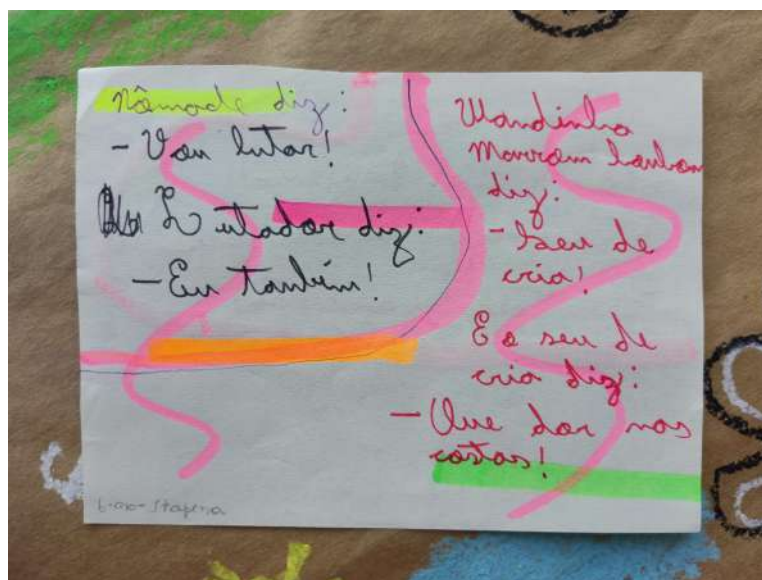 Nômade diz:
- Vou lutar!
Lutador diz:
- Eu também!
Wandinha
Marrom bombom
diz:
- Seu de
cria!
E o seu de
cria diz:
- Que dor nas
costas!